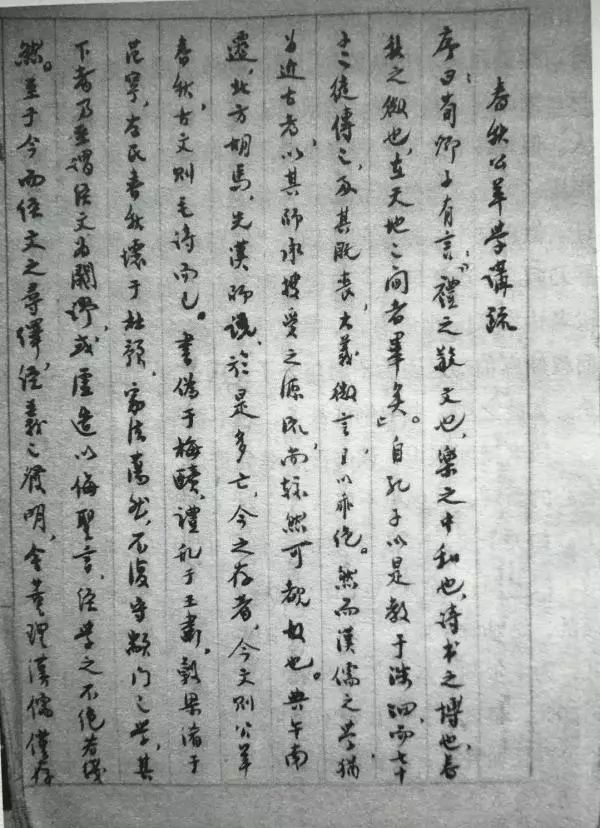 春秋公羊學講疏
序曰：荀卿子有言：「禮之敬文也，樂之中和也，詩书之博也，春
秋之微也，在天地之間者畢矣。」自孔子以是教于洙泗，而七十
二徒傳之，及其既喪，大義微言，以乖絕。然而漢儒之學猶
为近古者，以其師承授受之源流，尚秩然可覩故也。典午南
遷，北方胡馬，先漢師說，於是多亡，今之存者，今文則公羊
春秋，古文則毛诗而已。書偽于梅賾，禮乱于王肅，穀梁淆于
范甯，左氏春秋壞于杜預，家法蕩然，不復守顓门之學，其
下者乃至謂经文为闕谬，或虛造以侮聖言，经學之不绝若线
然。至于今而经文之尋绎，经義之發明，舍董理漢儒僅存